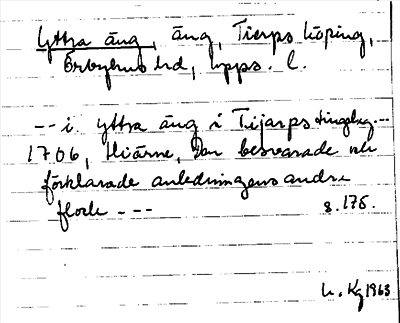 Yttra äng, äng, Tierps köping,
Örbyhus hd, Upps. l.
-- i yttra äng i Tijarps tingslag --
1706, Hiärne, Den besvarade och
förklarade anledningens andre
flock - -- s. 175.
L. Kg 1963